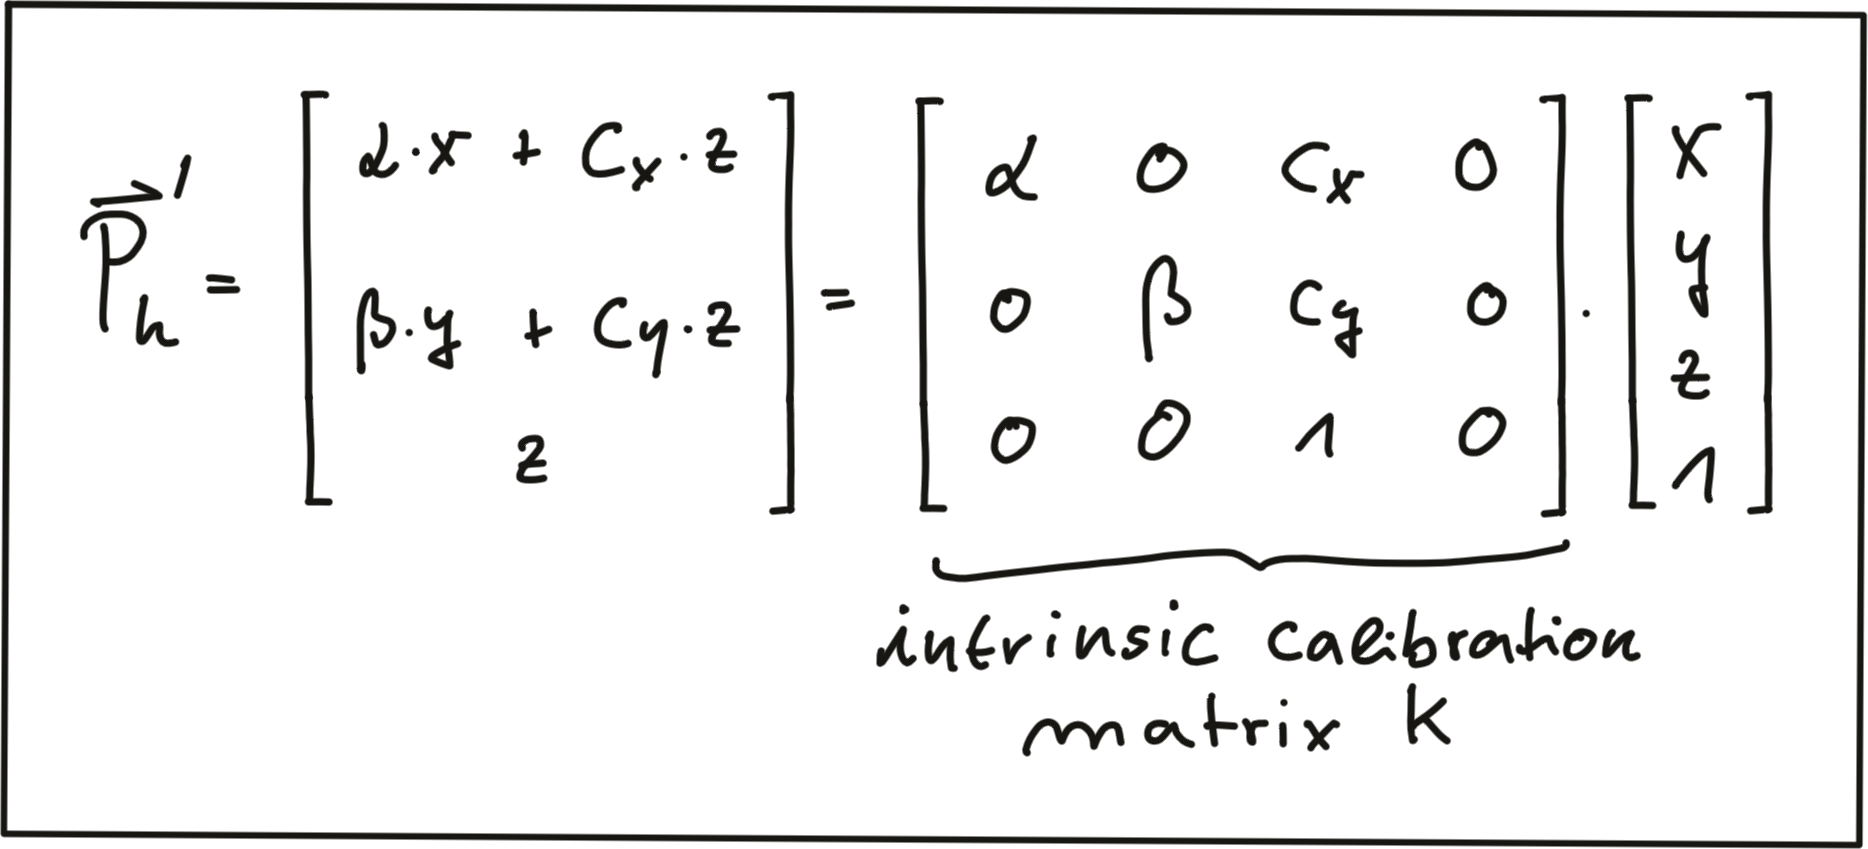 $\vec{P}_h' = \begin{bmatrix} \alpha \cdot x + C_x \cdot z \\ \beta \cdot y + C_y \cdot z \\ z \end{bmatrix} = \begin{bmatrix} \alpha & 0 & C_x & 0 \\ 0 & \beta & C_y & 0 \\ 0 & 0 & 1 & 0 \end{bmatrix} \cdot \begin{bmatrix} x \\ y \\ z \\ 1 \end{bmatrix}$
intrinsic calibration
matrix K